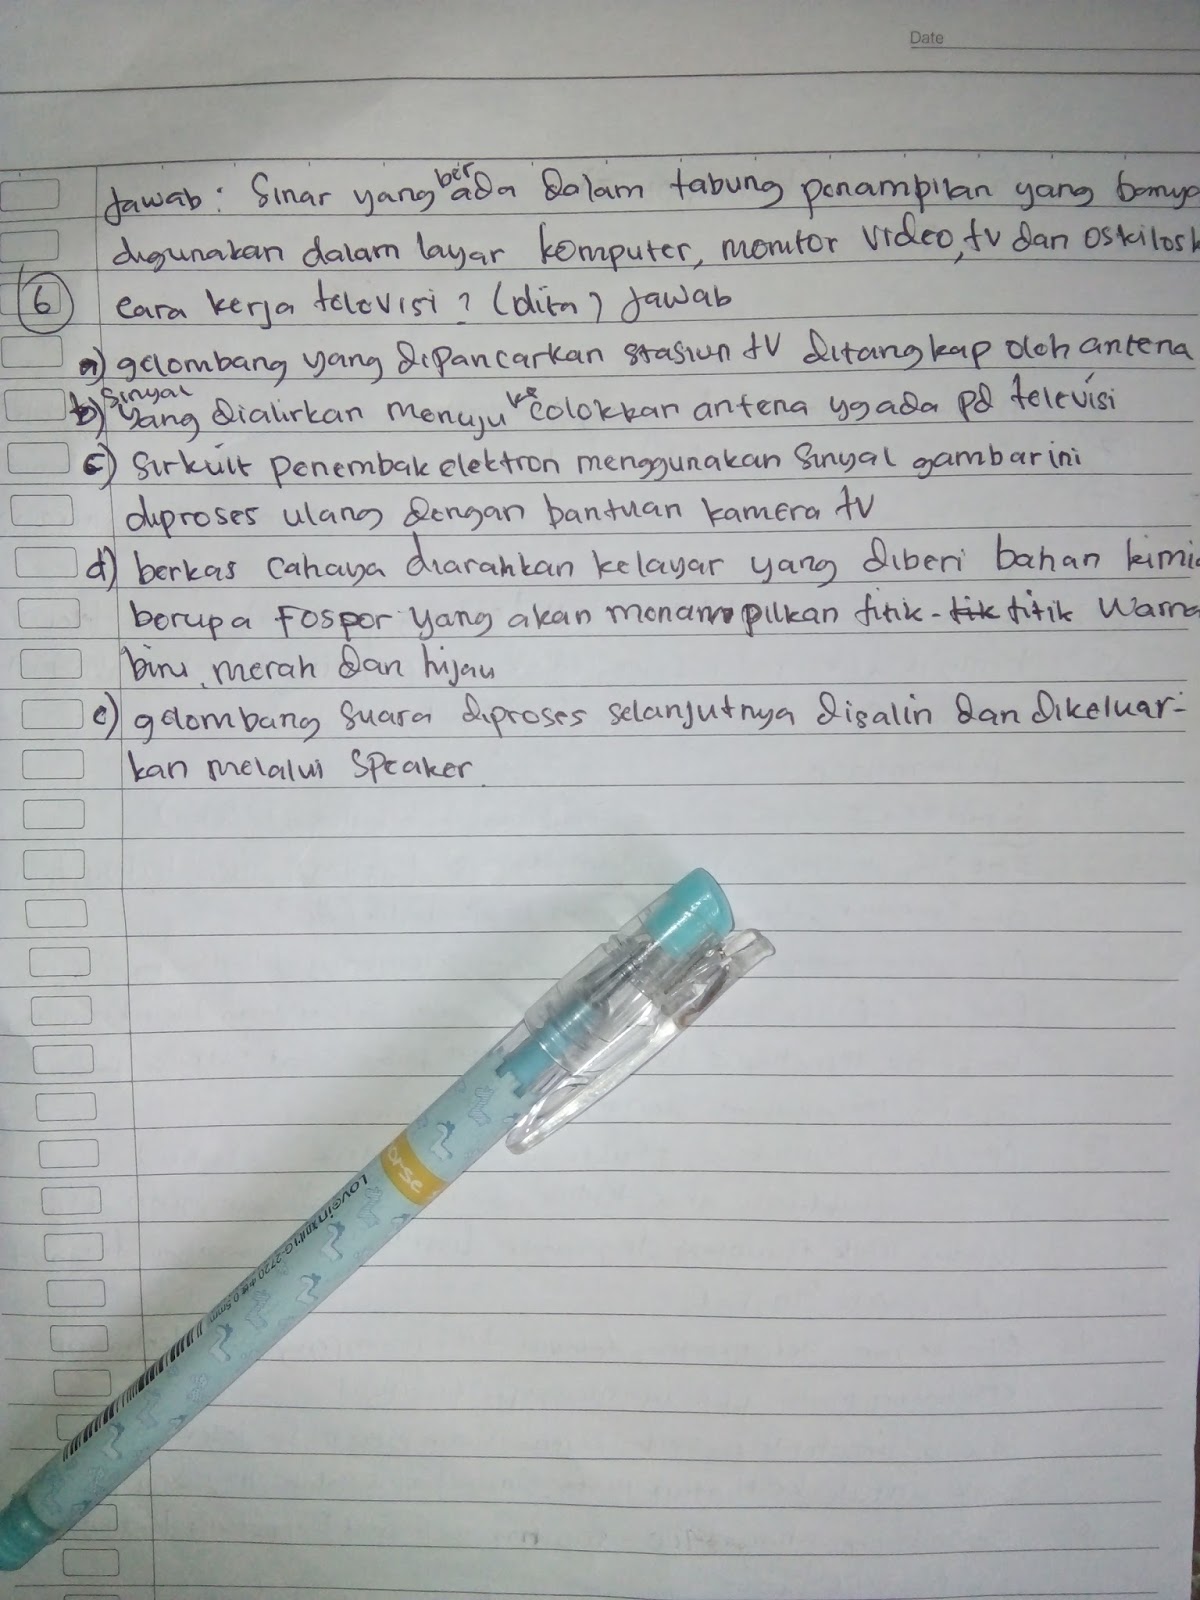 Date
Jawab : Sinar yang berada dalam tabung penampilan yang banya
digunakan dalam layar komputer, monitor video, tv dan oskilosk
6 Cara kerja televisi ? (dita) Jawab
a) gelombang yang dipancarkan stasiun tv ditangkap oleh antena
b) sinyal yang dialirkan menuju ke colokkan antena yg ada pd televisi
c) Sirkuit penembak elektron menggunakan sinyal gambar ini
diproses ulang dengan bantuan kamera tv
d) berkas cahaya diarahkan kelayar yang diberi bahan kimia
berupa Fospor yang akan menampilkan titik - tik titik warna
biru, merah dan hijau
e) gelombang suara diproses selanjutnya disalin dan dikeluar-
kan melalui speaker.
orse
Lovein
G-2720 0.5mm